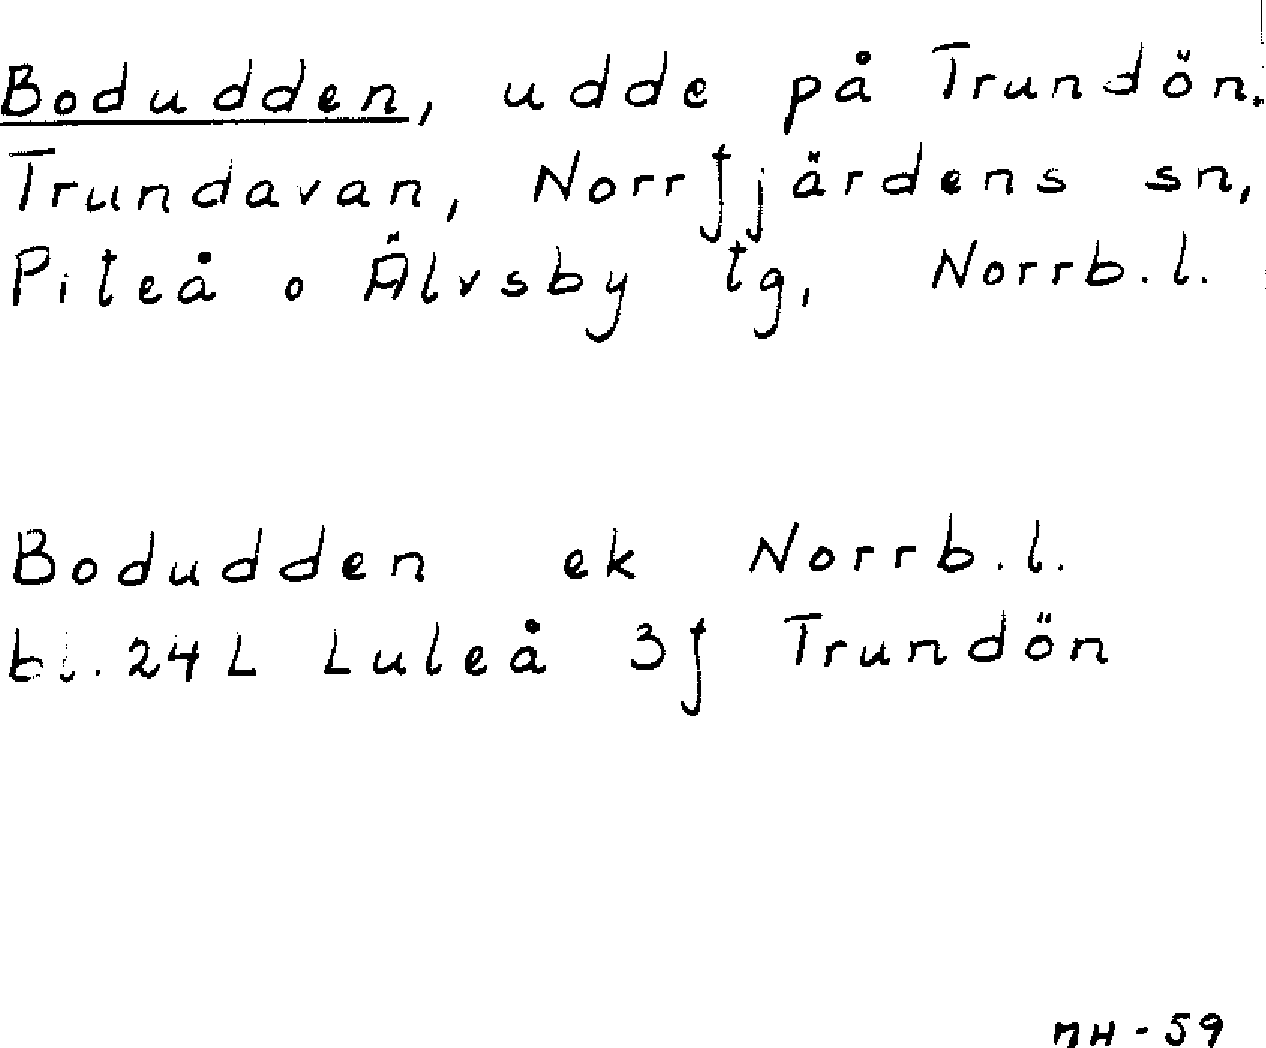 Bodudden, udde på Trundön.
Trundavan, Norrfjärdens sn,
Piteå o Älvsby tg, Norrb.l.
Bodudden ek Norrb.l.
bl. 24L Luleå 3f Trundön
MH-59